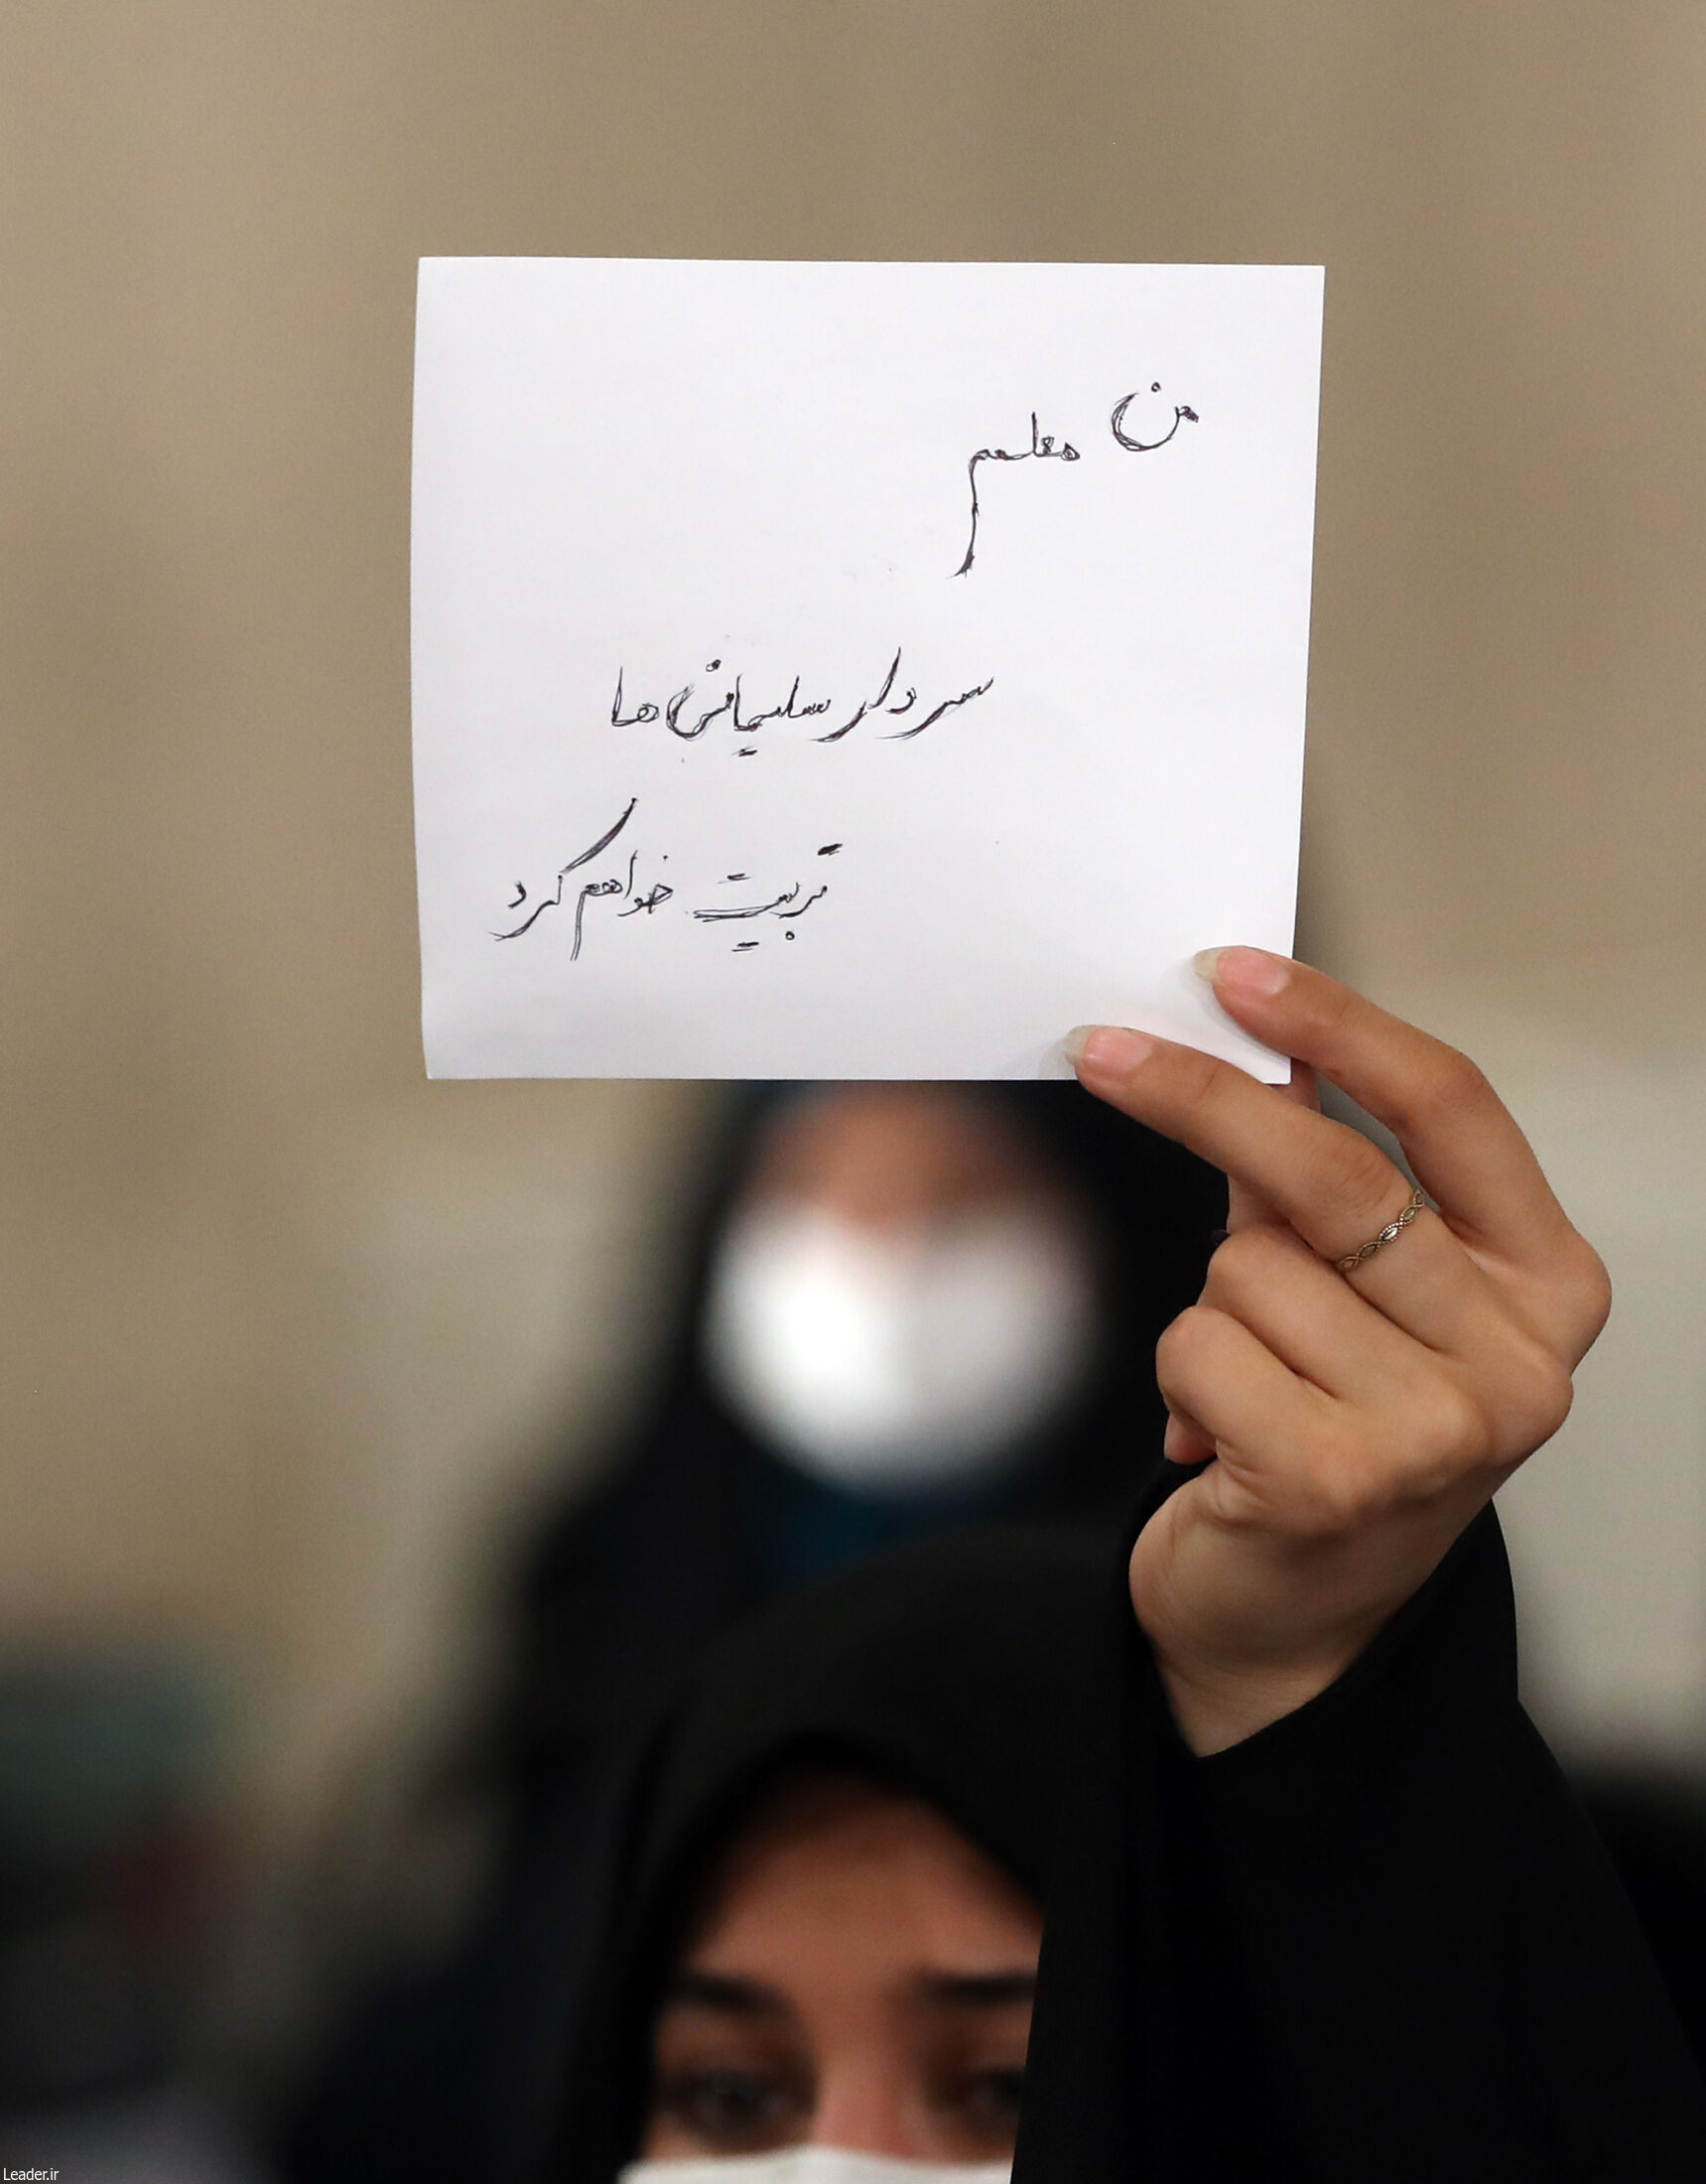 من معلمم
سردار سلیمانی ها
تربیت خواهم کرد
Leader.ir